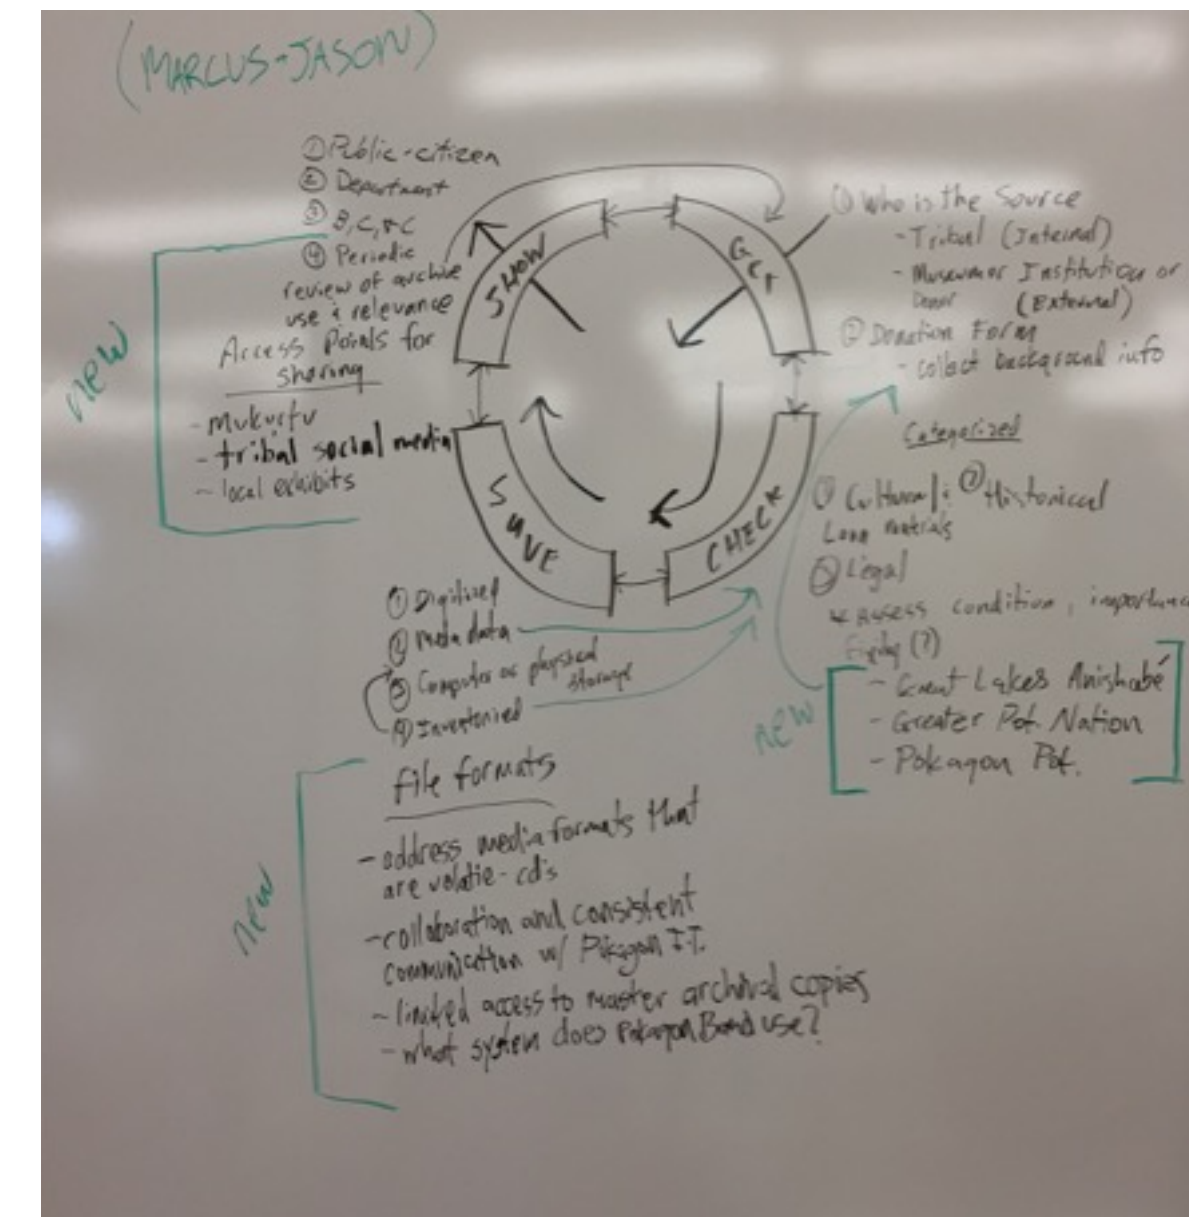 (MARCUS-JASON)
① Public-citizen
② Department
③ B, C, & C
④ Periodic
review of archive
use & relevance
Access Points for
sharing
- Mukurtu
- tribal social media
- local exhibits
new
SHOW
GET
CHECK
SAVE
① Who is the Source
- Tribal (Internal)
- Museum or Institution or
Donor (External)
② Donation Form
- collect background info
Categorized
① Cultural ② Historical
Loan materials
③ Legal
* Assess condition, importance
(?)
new
- Great Lakes Anishabé
- Greater Pot. Nation
- Pokagon Pot.
① Digitized
② Meta data
③ Computer or physical
storage
④ Inventoried
new
file formats
- address media formats that
are volatie - cd's
- collaboration and consistent
communication w/ Pokagon I.T.
- limited access to master archival copies
- what system does Pokagon Band use?